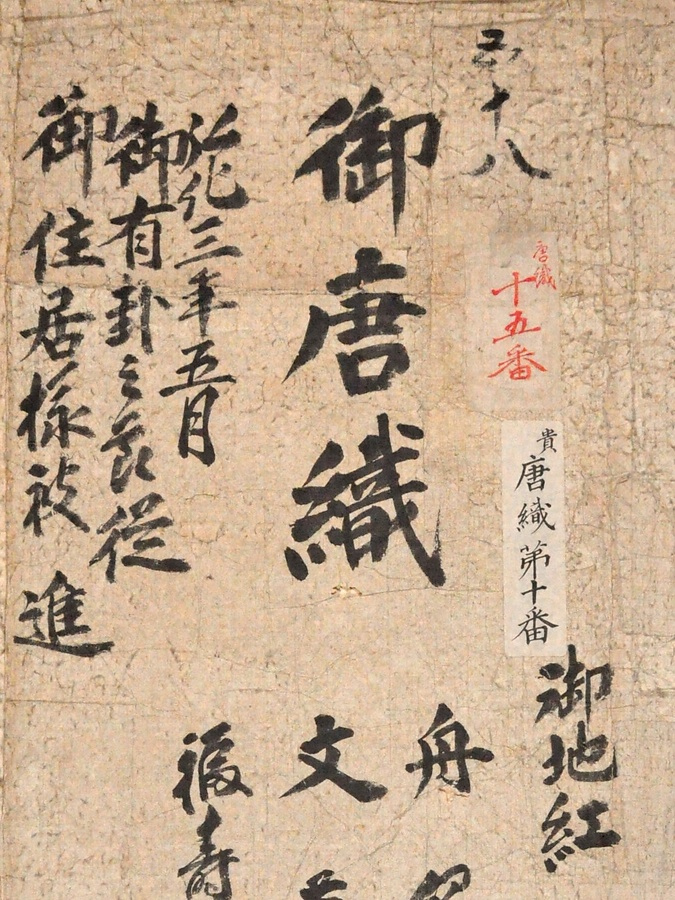 御地紅
五十八
唐織
十五番
貴
唐織第十番
舟
御唐織
文
弘化三年五月
福寿
御有卦之節従
御住居様被進